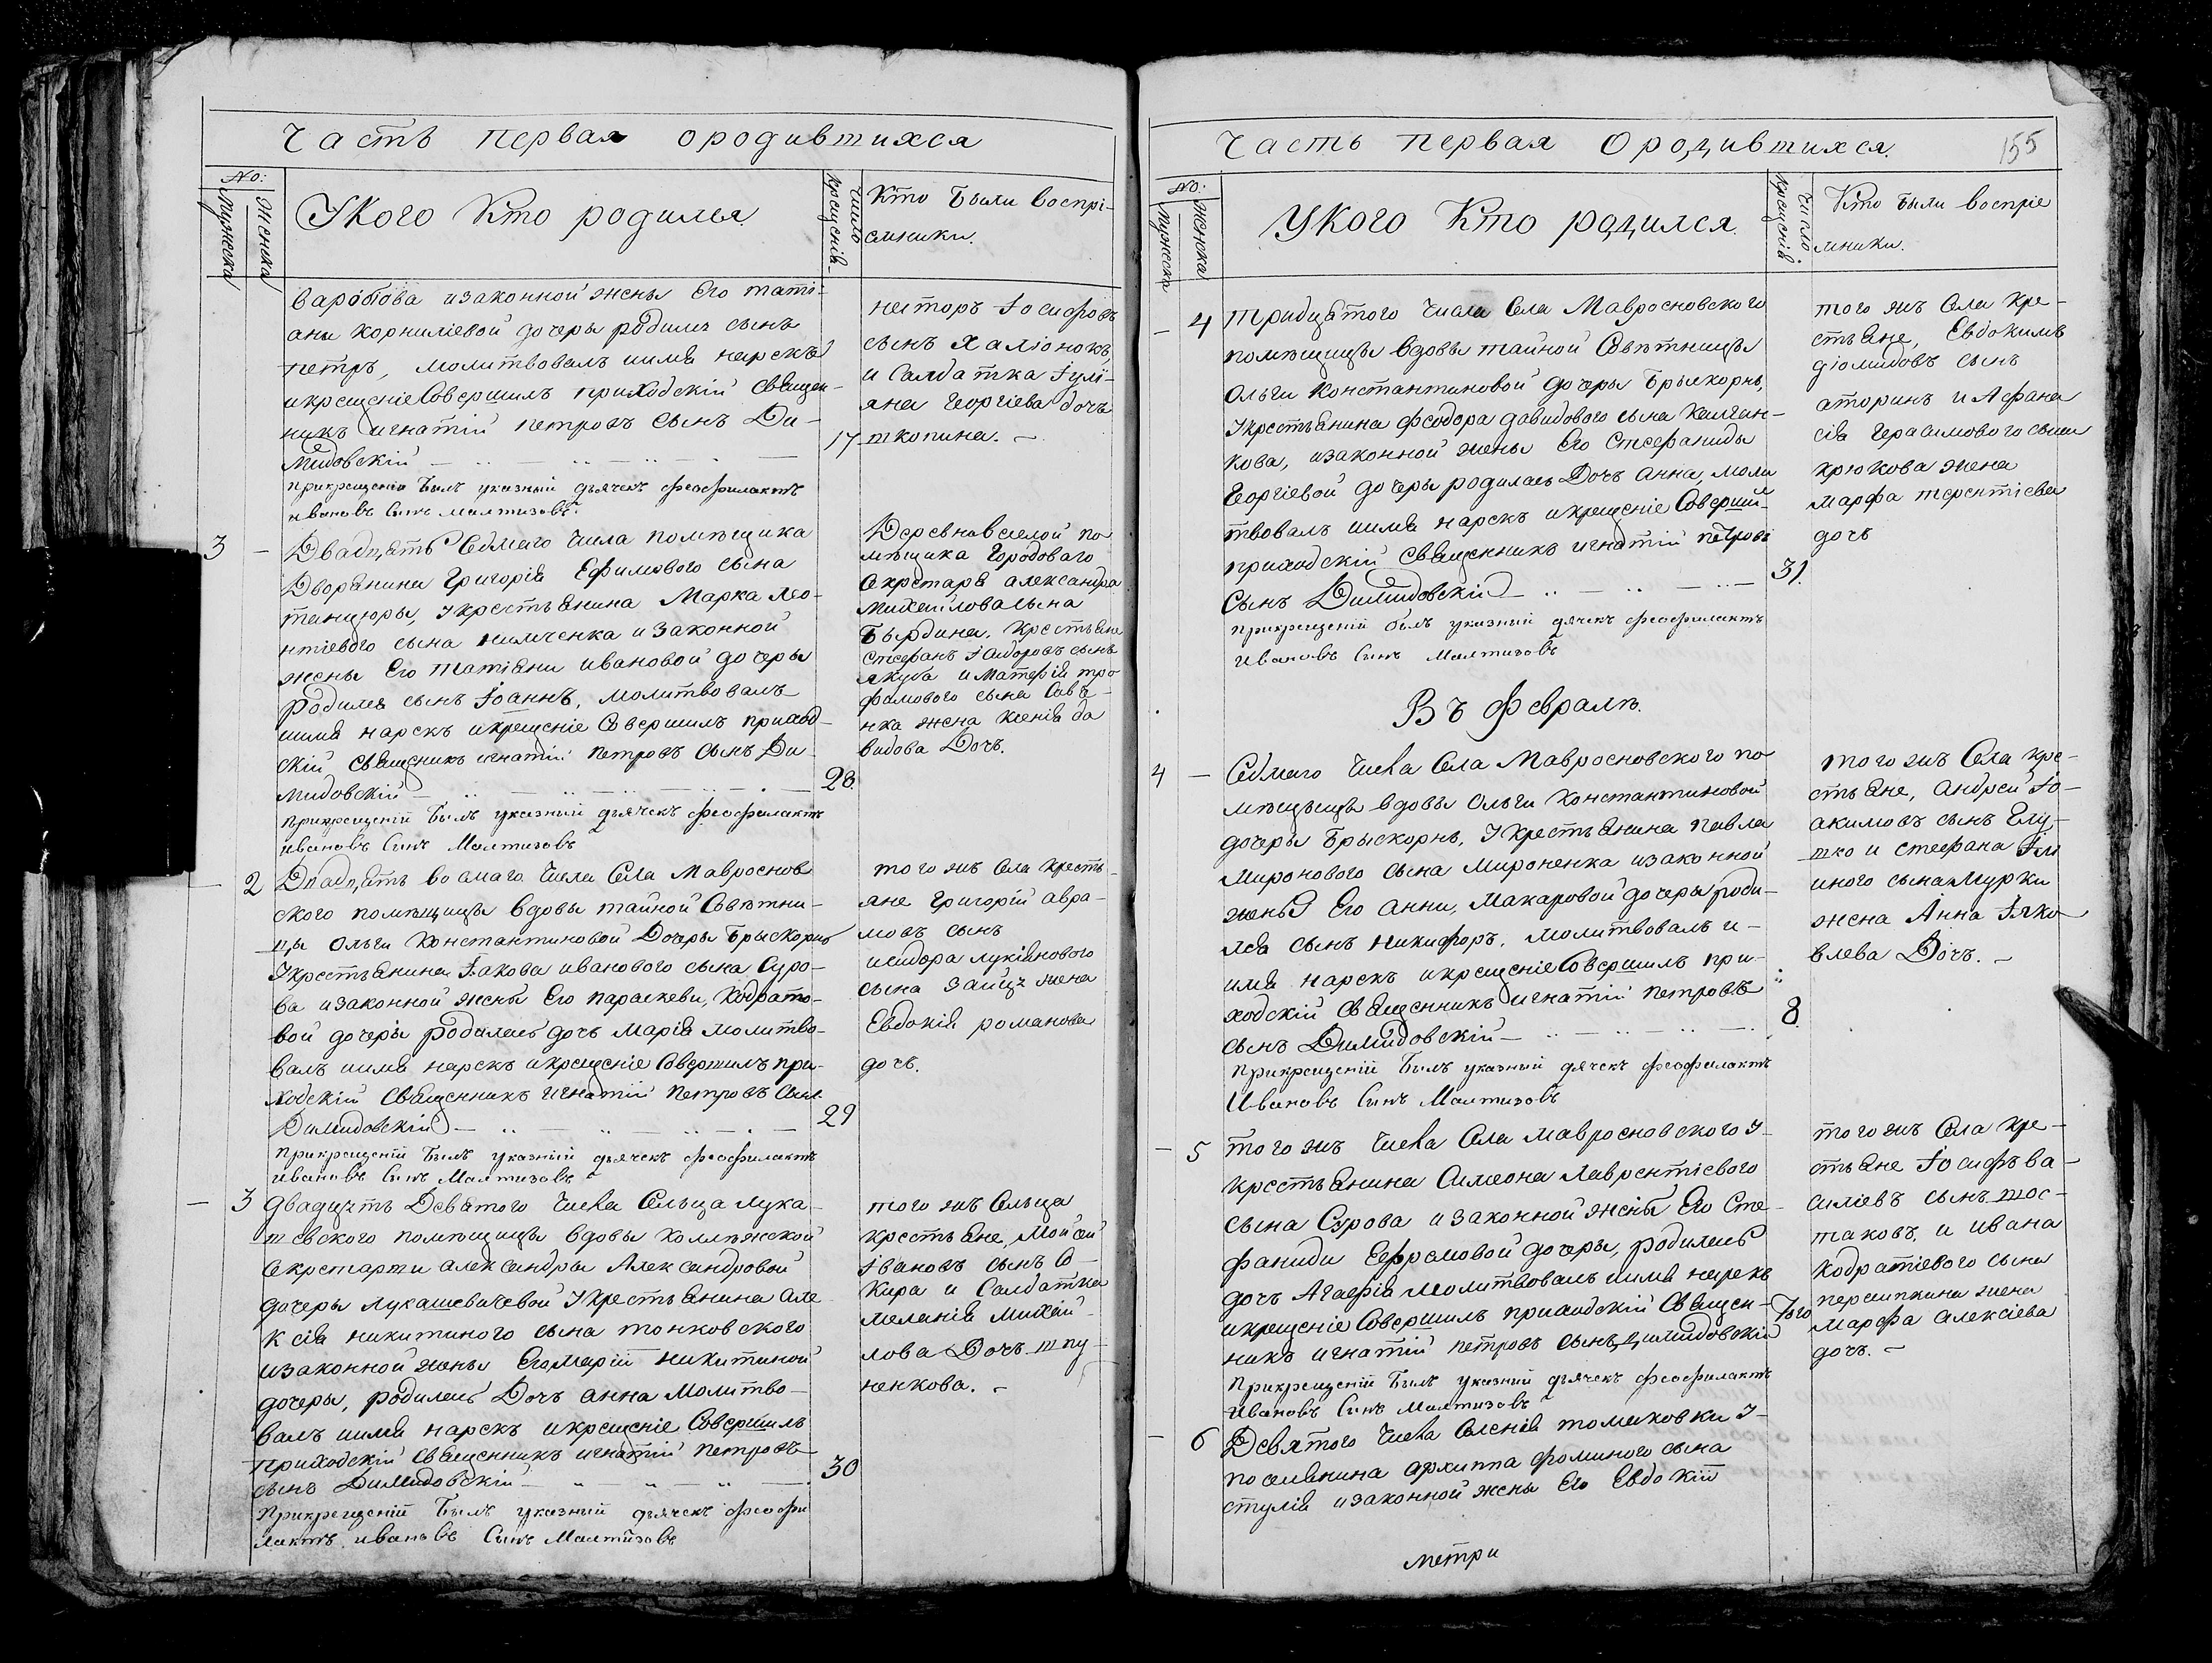 Часть первая ородившихся
No:
Мужеска
Женска
Укого Кто родился.
Число
крещенія
Кто были воспрі-
емники.
Варобова изаконной жены его тати-
аны корниліевой дочеры родился сынъ
петръ, молитвовалъ иимя нарекъ
икрещеніе Совершилъ приходскій Священ-
никъ игнатій петровъ сынъ Ди-
мидовскій
17
прикрещеніи былъ указный дьячекъ феофилактъ
ивановъ Сынъ
несторъ Іосифовъ
сынъ
и Салдатка Іулі-
яна Георгіева дочь
3 -
Двадцять Седмаго Числа помѣщика
Дворянина Григорія Ефимового сына
укрестьянина Марка лео-
нтіевого сына изаконной
жены Его татіяни ивановой дочеры
родился сынъ Іоаннъ, молитвовалъ
иимя нарекъ икрещеніе Совершилъ приход-
скій священникъ игнатій петровъ сынъ Ди-
мидовскій
28.
прикрещеніи былъ указный дьячекъ феофилактъ
ивановъ Сынъ
Деревни веселой по
мѣщика Городоваго
Секретаря александра
Михайлова сына
Крестьяне
Стефанъ Ісидоровъ сынъ
якуба и тро-
фимового сына Савче-
нка жена ксенія да
видова Дочь.
- 2
Двадцять восмаго Числа Села Мавроснов
ского помѣщицы вдовы тайной Совѣтни-
цы Ольги Константиновой Дочеры Брискорнъ
Укрестьянина Іакова иванового сына Суро-
ва изаконной жены Его параскеви, Кодрато-
вой дочеры родилась дочь марія молитво-
валъ иимя нарекъ икрещеніе Совершилъ при-
ходскій Священникъ Игнатій Петровъ Сынъ
Димидовскій
29
прикрещеніи былъ указный дьячекъ феофилактъ
ивановъ Сынъ
того жъ Села кресть-
яне Григорій авра-
мовъ сынъ
исидора лукіянового
сына Заиць жена
Евдокія романова
дочь.
- 3
Двадцять Девятого Числа Сельца лука-
шевского помѣщицы вдовы коллѣжской
Секретарши александры Александровой
дочеры лукашевичевой Укрестьянина але-
ксія никитиного сына тонковского
изаконной жены Его маріи никитиной
дочеры, родилась Дочь анна молитво-
валъ иимя нарекъ икрещеніе Совершилъ
приходскій священникъ игнатій петровъ
сынъ Димидовскій
30
прикрещеніи былъ указный дьячекъ феофи
лактъ ивановъ Сынъ
того жъ Сельца
крестьяне, Мойсей
Івановъ сынъ Со-
кира и Салдатка
меланія Михай-
лова Дочь шпу-
ненкова. -
Часть первая Ородившихся.
155
No:
Мужеска
Женска
Укого Кто родился
Число
крещенія.
Кто были воспріе
мники.
- 4
Тридцятого Числа Села Мавросновского
помѣщицы вдовы тайной Совѣтницы
Ольги Константиновой дочеры Брискорнъ,
Укрестьянина феодора давидового сына
кова, изаконной жены Его Стефаниды
Георгіевой дочеры родилась Дочь анна, моли
твовалъ иимя нарекъ икрещеніе Соверши-
приходскій священникъ игнатій петровъ
Сынъ Димидовскій
31.
прикрещеніи былъ указный дячекъ феофилактъ
ивановъ Сынъ
того жъ Села Кре-
стьяне, Евдокимъ
діомидовъ сынъ
аторинъ и Афана
сія Герасимового сына
крюкова жена
марфа терентіева
дочь
Въ Февралѣ.
4 -
Седмаго Числа Села Мавросновского по
мѣщицы вдовы Ольги Константиновой
дочеры Брыскорнъ, Укрестьянина павла
миронового сына мироненка изаконной
жены Его анни, Макаровой дочеры роди-
лся сынъ никифоръ, молитвовалъ и-
имя нарекъ икрещеніе Совершилъ при-
ходскій священникъ игнатій петровъ
сынъ Димидовскій
8.
прикрещеніи былъ указный дячекъ феофилактъ
Ивановъ Сынъ
того жъ Села кре-
стьяне, андрей Іо-
акимовъ сынъ Глу-
шко и стефана Іль
иного сына Мурки
жена Анна Іяко
влева Дочь. -
- 5
того жъ Числа Села мавросновского У-
крестьянина Симеона лаврентіевого
сына Сурова изаконной жены Его Сте-
фаниди Ефремовой дочеры, родилась
дочь Агафія молитвовалъ иимя нарекъ
икрещеніе Совершилъ приходскій Священ-
никъ игнатій петровъ сынъ димидовскій
прикрещеніи былъ указный дьячекъ феофилактъ
Ивановъ Сынъ
того жъ Села кре-
стьяне Іосифъ ва-
силіевъ сынъ шос-
таковъ, и ивана
кодратіевого сына
першикина жена
марфа алексіева
дочь. -
- 6
Девятого Числа Селенія томаковки У-
поселянина архиппа фоминого сына
стулія изаконной жены Его Евдокіи
метри